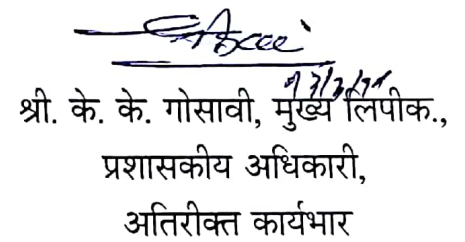 श्री. के. के. गोसावी, मुख्य लिपीक.,
प्रशासकीय अधिकारी,
अतिरीक्त कार्यभार